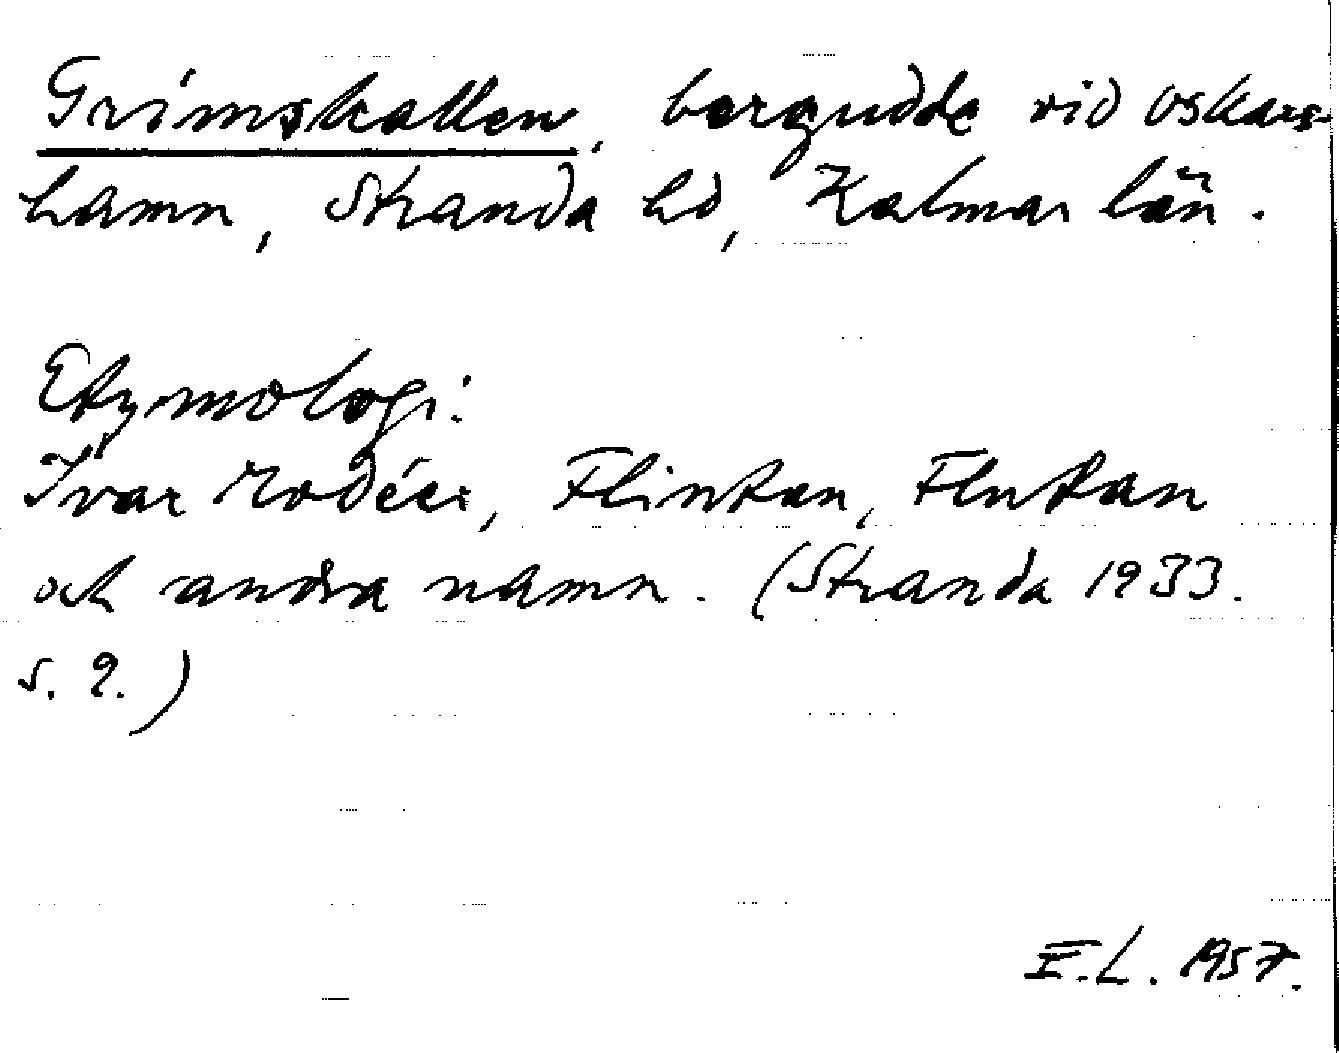 Grimskallen, bergudde vid Oskars-
hamn, Stranda hd, Kalmar län.
Etymologi:
Ivar Modéer, Flintan, Flutan
och andra namn. (Stranda 1933.
s. 9.)
F.L. 1957.